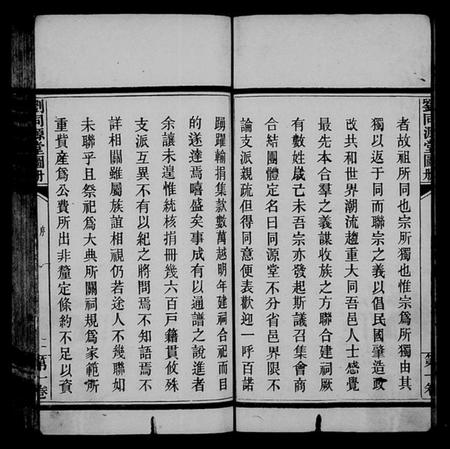 劉同源堂圖册
第一卷
者故祖所同也宗所獨也惟宗爲所獨由其
獨以返于同而聯宗之義以倡民國肇造政
改共和世界潮流趨重大同吾邑人士感覺
最先本合羣之義謀收族之方聯合建祠厥
有數姓歲己未吾宗亦發起斯議召集會商
合結團體定名曰同源堂不分省邑界限不
論支派親疏但得同意便表歡迎一呼百諾
踴躍輸捐集款數萬越明年建祠合祀而目
的遂達焉嘻盛矣事成有以通譜之說進者
余讓未遑惟統核捐冊幾六百戶籍貫攸殊
支派互異不有以紀之將問焉不知語焉不
詳相關雖屬族誼相視仍若途人不幾聯如
未聯乎且祭祀爲大典所關祠規爲家範所
重貲産爲公費所出非釐定條約不足以資
劉同源堂圖册
序
二
第一卷